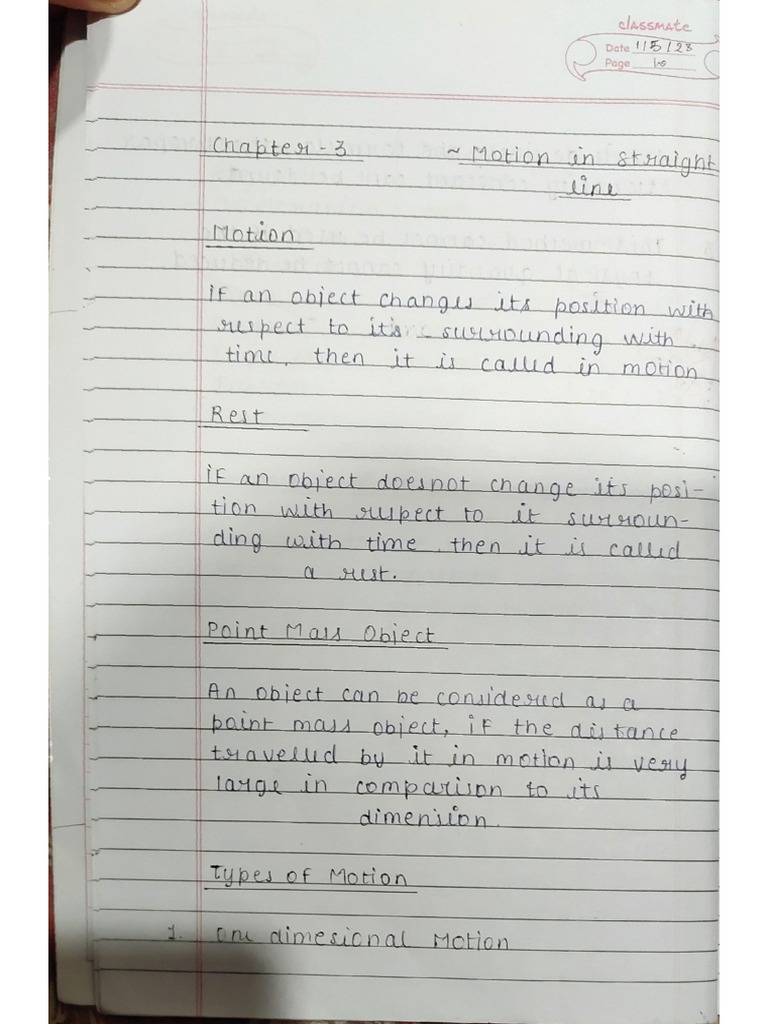 classmate
Date 1/5/23
Page 10
Chapter - 3 ~ Motion in straight
line
Motion
if an object changes its position with
respect to its surrounding with
time, then it is called in motion
Rest
if an object doesnot change its posi-
tion with respect to it surroun-
ding with time, then it is called
a rest.
Point Mass Object
An object can be considered as a
point mass object, if the distance
travelled by it in motion is very
large in comparison to its
dimension.
Types of Motion
1. one dimesional Motion